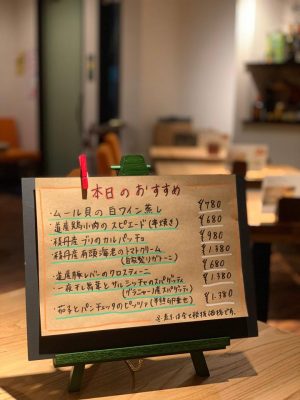 本日のおすすめ
・ムール貝の白ワイン蒸し ¥780
・道産鶏小肉のスピエード(串焼き) ¥680
・積丹産ブリのカルパッチョ ¥980
・積丹産有頭海老のトマトクリーム ¥1.380
(自家製リガトーニ)
・道産豚レバーのクロスティーニ ¥680
・一夜干し茄子とサルシッチャのスパゲッティ ¥1.380
(グラニャーノ産スパゲッティ)
・茄子とパンチェッタのピッツァ(半熟卵乗せ) ¥1.380
※表示は全て税抜価格です。